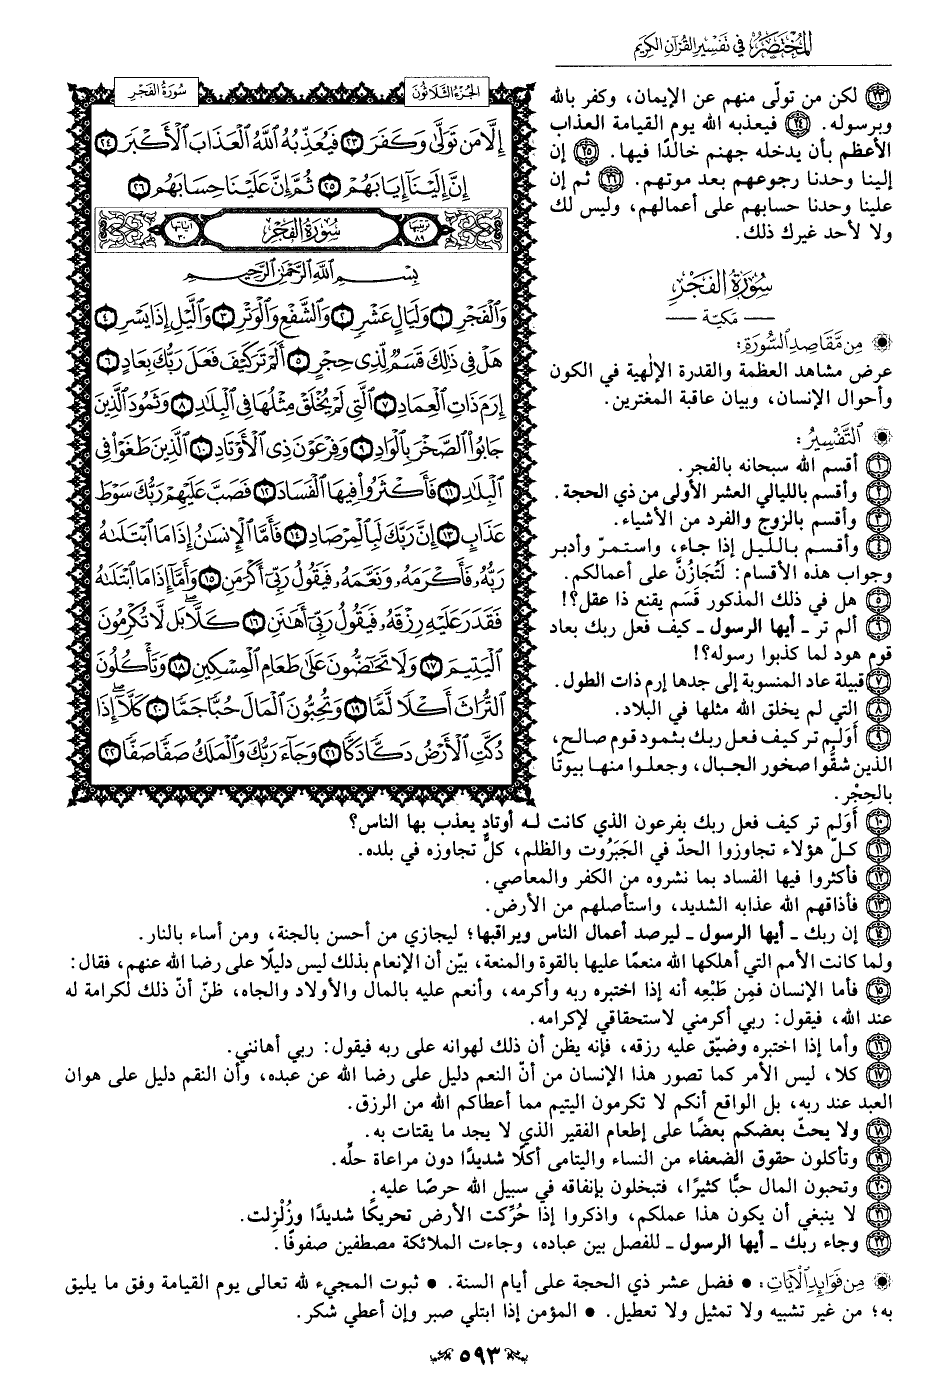 المختصر في تفسير القرآن الكريم
الجزء الثلاثون
سورة الفجر
إِلَّا مَن تَوَلَّىٰ وَكَفَرَ ۝٢٣ فَيُعَذِّبُهُ ٱللَّهُ ٱلْعَذَابَ ٱلْأَكْبَرَ ۝٢٤
إِنَّ إِلَيْنَآ إِيَابَهُمْ ۝٢٥ ثُمَّ إِنَّ عَلَيْنَا حِسَابَهُم ۝٢٦
ترتيبها ٨٩
سورة الفجر
آياتها ٣٠
بِسْمِ ٱللَّهِ ٱلرَّحْمَٰنِ ٱلرَّحِيمِ
وَٱلْفَجْرِ ۝١ وَلَيَالٍ عَشْرٍ ۝٢ وَٱلشَّفْعِ وَٱلْوَتْرِ ۝٣ وَٱلَّيْلِ إِذَا يَسْرِ ۝٤
هَلْ فِى ذَٰلِكَ قَسَمٌ لِّذِى حِجْرٍ ۝٥ أَلَمْ تَرَ كَيْفَ فَعَلَ رَبُّكَ بِعَادٍ ۝٦
إِرَمَ ذَاتِ ٱلْعِمَادِ ۝٧ ٱلَّتِى لَمْ يُخْلَقْ مِثْلُهَا فِى ٱلْبِلَٰدِ ۝٨ وَثَمُودَ ٱلَّذِينَ
جَابُوا۟ ٱلصَّخْرَ بِٱلْوَادِ ۝٩ وَفِرْعَوْنَ ذِى ٱلْأَوْتَادِ ۝١٠ ٱلَّذِينَ طَغَوْا۟ فِى
ٱلْبِلَٰدِ ۝١١ فَأَكْثَرُوا۟ فِيهَا ٱلْفَسَادَ ۝١٢ فَصَبَّ عَلَيْهِمْ رَبُّكَ سَوْطَ
عَذَابٍ ۝١٣ إِنَّ رَبَّكَ لَبِٱلْمِرْصَادِ ۝١٤ فَأَمَّا ٱلْإِنسَٰنُ إِذَا مَا ٱبْتَلَىٰهُ
رَبُّهُۥ فَأَكْرَمَهُۥ وَنَعَّمَهُۥ فَيَقُولُ رَبِّىٓ أَكْرَمَنِ ۝١٥ وَأَمَّآ إِذَا مَا ٱبْتَلَىٰهُ
فَقَدَرَ عَلَيْهِ رِزْقَهُۥ فَيَقُولُ رَبِّىٓ أَهَٰنَنِ ۝١٦ كَلَّا ۖ بَل لَّا تُكْرِمُونَ
ٱلْيَتِيمَ ۝١٧ وَلَا تَحَٰٓضُّونَ عَلَىٰ طَعَامِ ٱلْمِسْكِينِ ۝١٨ وَتَأْكُلُونَ
ٱلتُّرَاثَ أَكْلًا لَّمًّا ۝١٩ وَتُحِبُّونَ ٱلْمَالَ حُبًّا جَمًّا ۝٢٠ كَلَّآ ۖ إِذَا
دُكَّتِ ٱلْأَرْضُ دَكًّا دَكًّا ۝٢١ وَجَآءَ رَبُّكَ وَٱلْمَلَكُ صَفًّا صَفًّا ۝٢٢
٢٣ لكن من تولّى منهم عن الإيمان، وكفر بالله
وبرسوله. ٢٤ فيعذبه الله يوم القيامة العذاب
الأعظم بأن يدخله جهنم خالدًا فيها. ٢٥ إن
إلينا وحدنا رجوعهم بعد موتهم. ٢٦ ثم إن
علينا وحدنا حسابهم على أعمالهم، وليس لك
ولا لأحد غيرك ذلك.
سورة الفجر
— مكية —
من مقاصد السورة:
عرض مشاهد العظمة والقدرة الإلهية في الكون
وأحوال الإنسان، وبيان عاقبة المغترين.
التفسير:
١ أقسم الله سبحانه بالفجر.
٢ وأقسم بالليالي العشر الأولى من ذي الحجة.
٣ وأقسم بالزوج والفرد من الأشياء.
٤ وأقسم بالليل إذا جاء، واستمرّ وأدبر
وجواب هذه الأقسام: لَتُجَازُنَّ على أعمالكم.
٥ هل في ذلك المذكور قَسَم يقنع ذا عقل؟!
٦ ألم تر ـ أيها الرسول ـ كيف فعل ربك بعاد
قوم هود لما كذبوا رسوله؟!
٧ قبيلة عاد المنسوبة إلى جدها إرم ذات الطول.
٨ التي لم يخلق الله مثلها في البلاد.
٩ أَوَلم تر كيف فعل ربك بثمود قوم صالح،
الذين شقُّوا صخور الجبال، وجعلوا منها بيوتًا
بالحِجْر.
١٠ أَوَلم تر كيف فعل ربك بفرعون الذي كانت له أوتاد يعذب بها الناس؟
١١ كلّ هؤلاء تجاوزوا الحدّ في الجَبَرُوت والظلم، كلٌّ تجاوزه في بلده.
١٢ فأكثروا فيها الفساد بما نشروه من الكفر والمعاصي.
١٣ فأذاقهم الله عذابه الشديد، واستأصلهم من الأرض.
١٤ إن ربك ـ أيها الرسول ـ ليرصد أعمال الناس ويراقبها؛ ليجازي من أحسن بالجنة، ومن أساء بالنار.
ولما كانت الأمم التي أهلكها الله منعمًا عليها بالقوة والمنعة، بيّن أن الإنعام بذلك ليس دليلًا على رضا الله عنهم، فقال:
١٥ فأما الإنسان فمِن طَبْعِه أنه إذا اختبره ربه وأكرمه، وأنعم عليه بالمال والأولاد والجاه، ظنّ أنّ ذلك لكرامة له
عند الله، فيقول: ربي أكرمني لاستحقاقي لإكرامه.
١٦ وأما إذا اختبره وضيّق عليه رزقه، فإنه يظن أن ذلك لهوانه على ربه فيقول: ربي أهانني.
١٧ كلا، ليس الأمر كما تصور هذا الإنسان من أنّ النعم دليل على رضا الله عن عبده، وأن النقم دليل على هوان
العبد عند ربه، بل الواقع أنكم لا تكرمون اليتيم مما أعطاكم الله من الرزق.
١٨ ولا يحثّ بعضكم بعضًا على إطعام الفقير الذي لا يجد ما يقتات به.
١٩ وتأكلون حقوق الضعفاء من النساء واليتامى أكلًا شديدًا دون مراعاة حلّه.
٢٠ وتحبون المال حبًّا كثيرًا، فتبخلون بإنفاقه في سبيل الله حرصًا عليه.
٢١ لا ينبغي أن يكون هذا عملكم، واذكروا إذا حُرِّكت الأرض تحريكًا شديدًا وزُلْزِلت.
٢٢ وجاء ربك ـ أيها الرسول ـ للفصل بين عباده، وجاءت الملائكة مصطفين صفوفًا.
من فوائد الآيات: • فضل عشر ذي الحجة على أيام السنة. • ثبوت المجيء لله تعالى يوم القيامة وفق ما يليق
به؛ من غير تشبيه ولا تمثيل ولا تعطيل. • المؤمن إذا ابتلي صبر وإن أعطي شكر.
٥٩٣